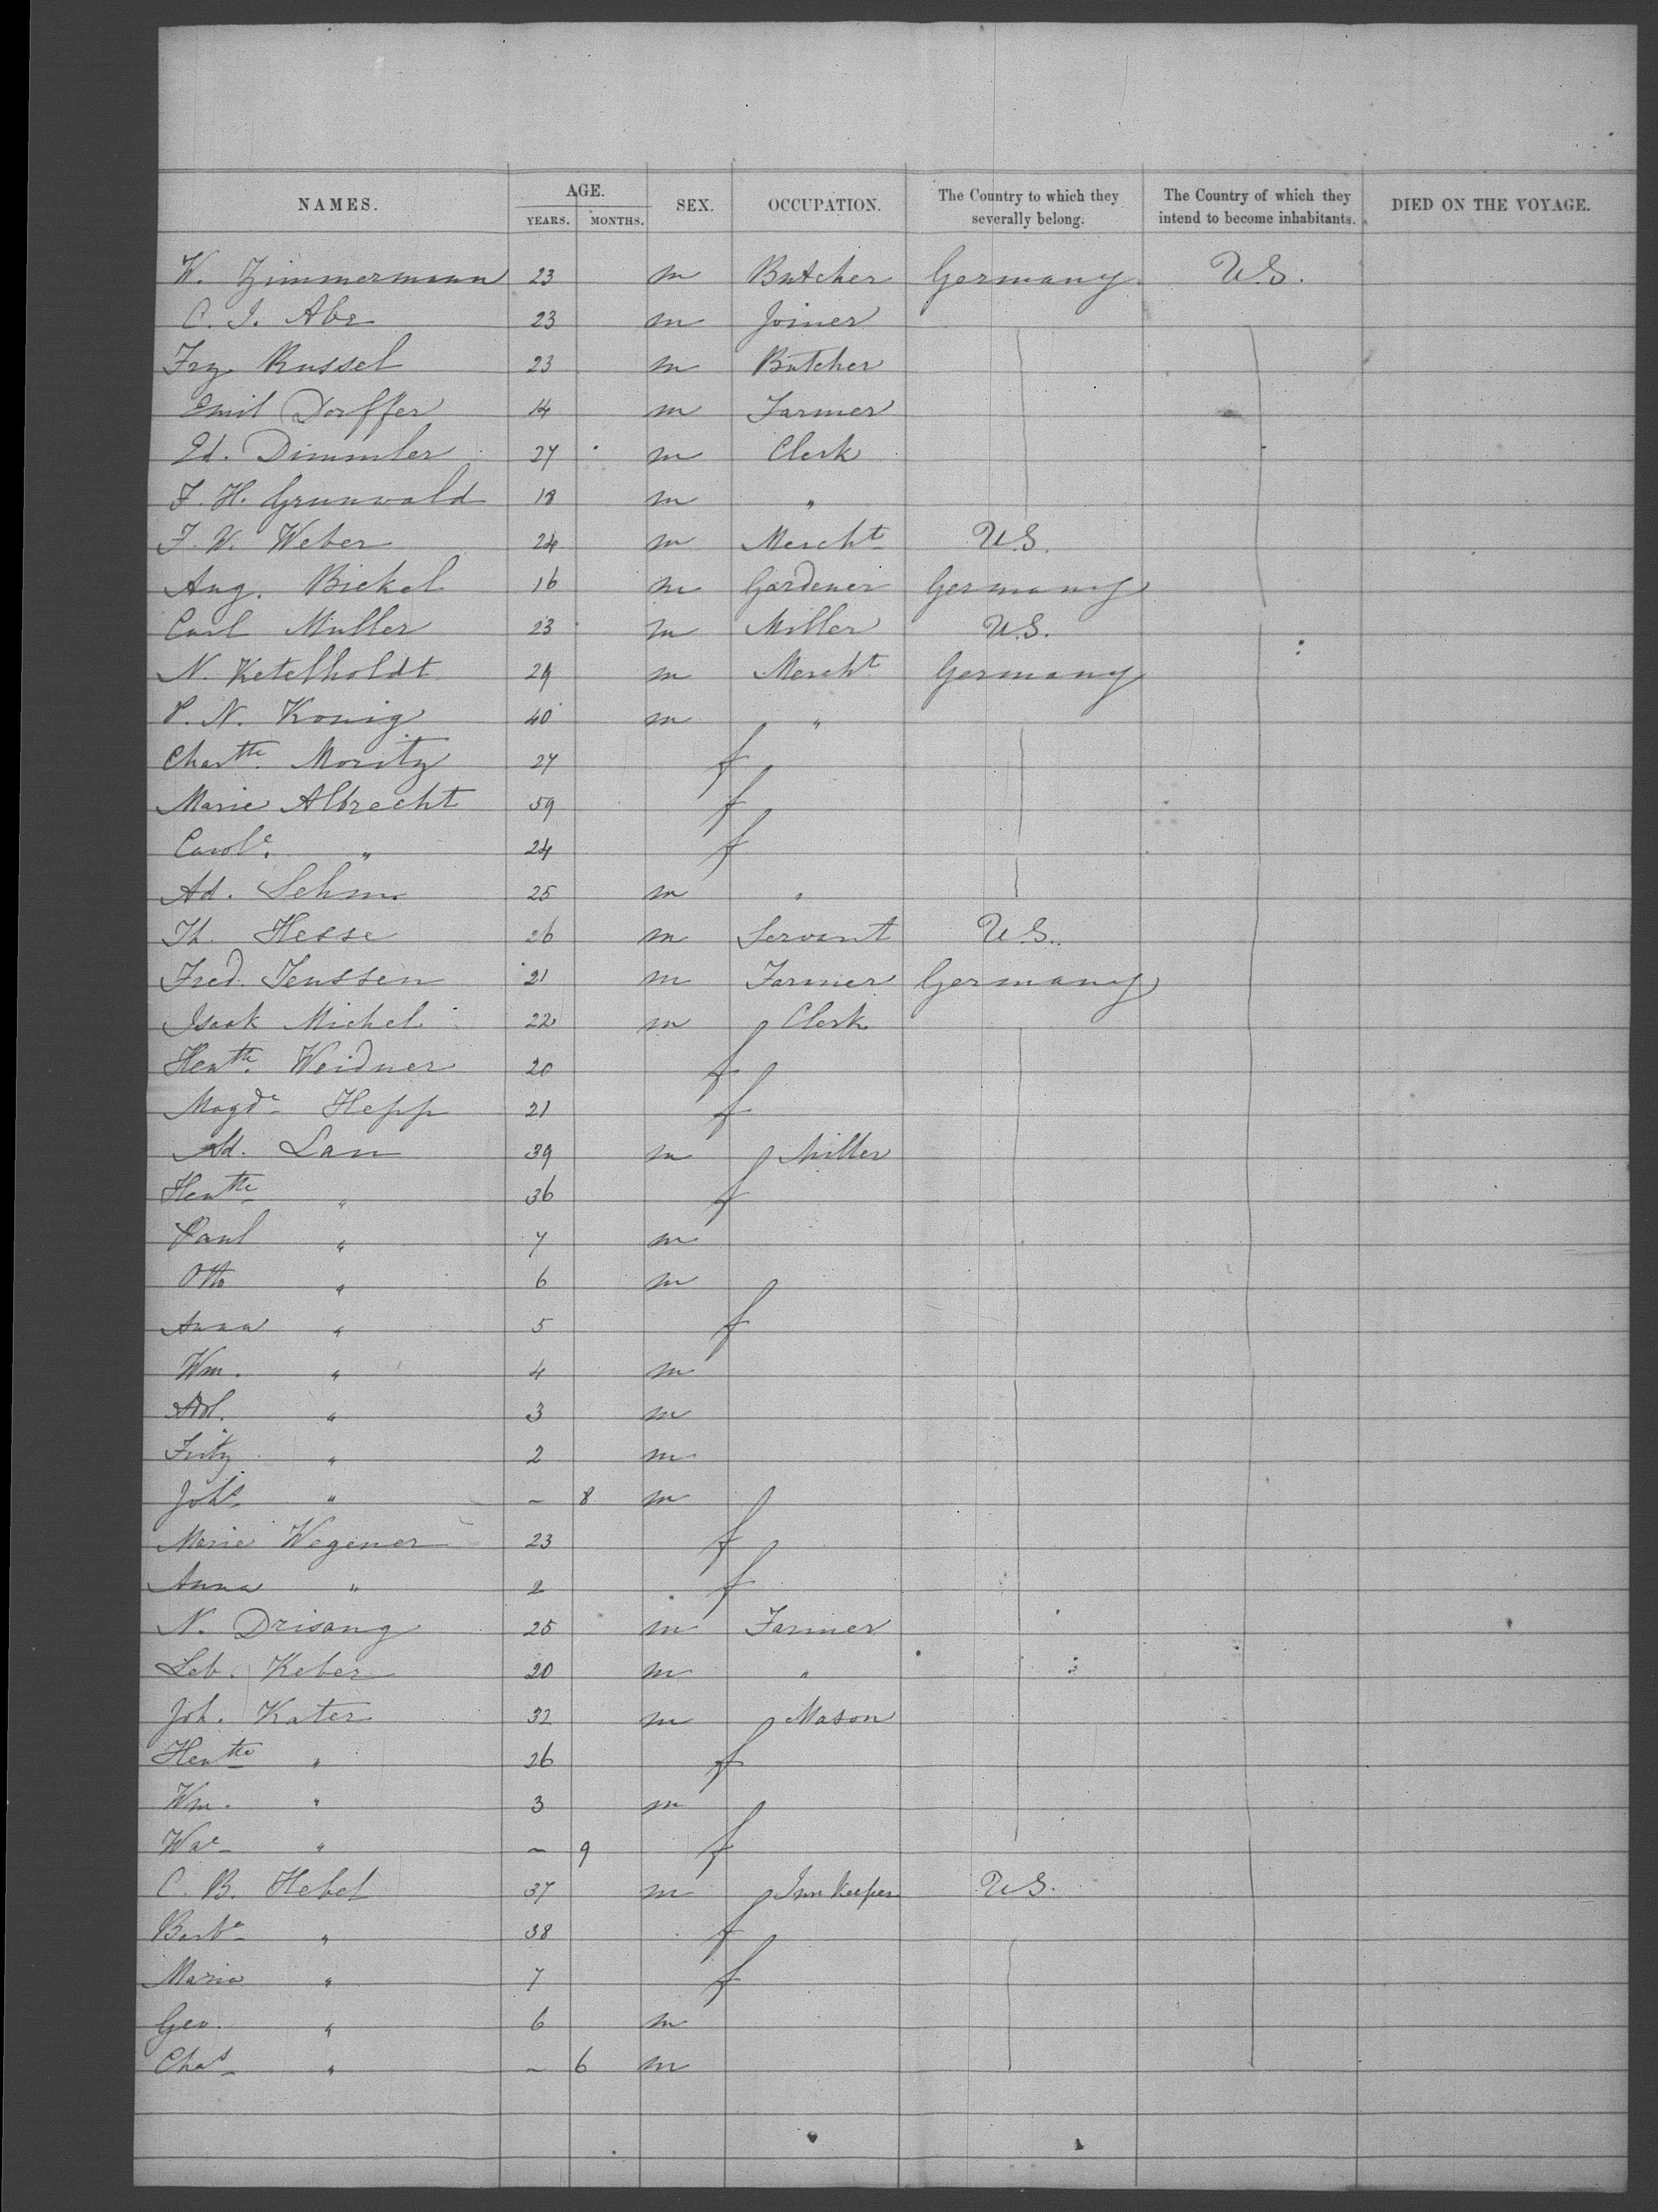 NAMES. AGE. SEX. OCCUPATION. The Country to which they severally belong. The Country of which they intend to become inhabitants. DIED ON THE VOYAGE.
YEARS. MONTHS.
W. Zimmermann 23 m Butcher Germany U.S.
C. J. Abr 23 m Joiner
Frz. Russel 23 m Butcher
Emil Dorffer 14 m Farmer
Ed. Dimmler 27 m Clerk
F. H. Grunwald 18 m "
F. W. Weber 24 m Mercht U.S.
Aug. Bickel 16 m Gardener Germany
Carl Muller 23 m Miller U.S.
N. Ketelholdt 29 m Mercht Germany
P. N. Konig 40 m "
Chartte Moritz 27 f
Marie Albrecht 59 f
Carole " 24 f
Ad. Sehm 25 m "
Th. Hesse 26 m Servant U.S.
Fred. Jenssen 21 m Farmer Germany
Isaak Michel 22 m Clerk
Hentte Weidner 20 f
Magde Hepp 21 f
Ad. Lau 39 m Miller
Hentte " 36 f
Paul " 7 m
Otto " 6 m
Anna " 5 f
Wm. " 4 m
Adol. " 3 m
Fritz " 2 m
Johs " – 8 m
Marie Wegener 23 f
Anna " 2 f
N. Drisang 25 m Farmer
Seb. Keber 20 m "
Joh. Kater 32 m Mason
Hentte " 26 f
Wm. " 3 m
We " – 9 f
C. B. Hebel 37 m Inn Keeper U.S.
Barba " 38 f
Maria " 7 f
Geo. " 6 m
Chas " – 6 m